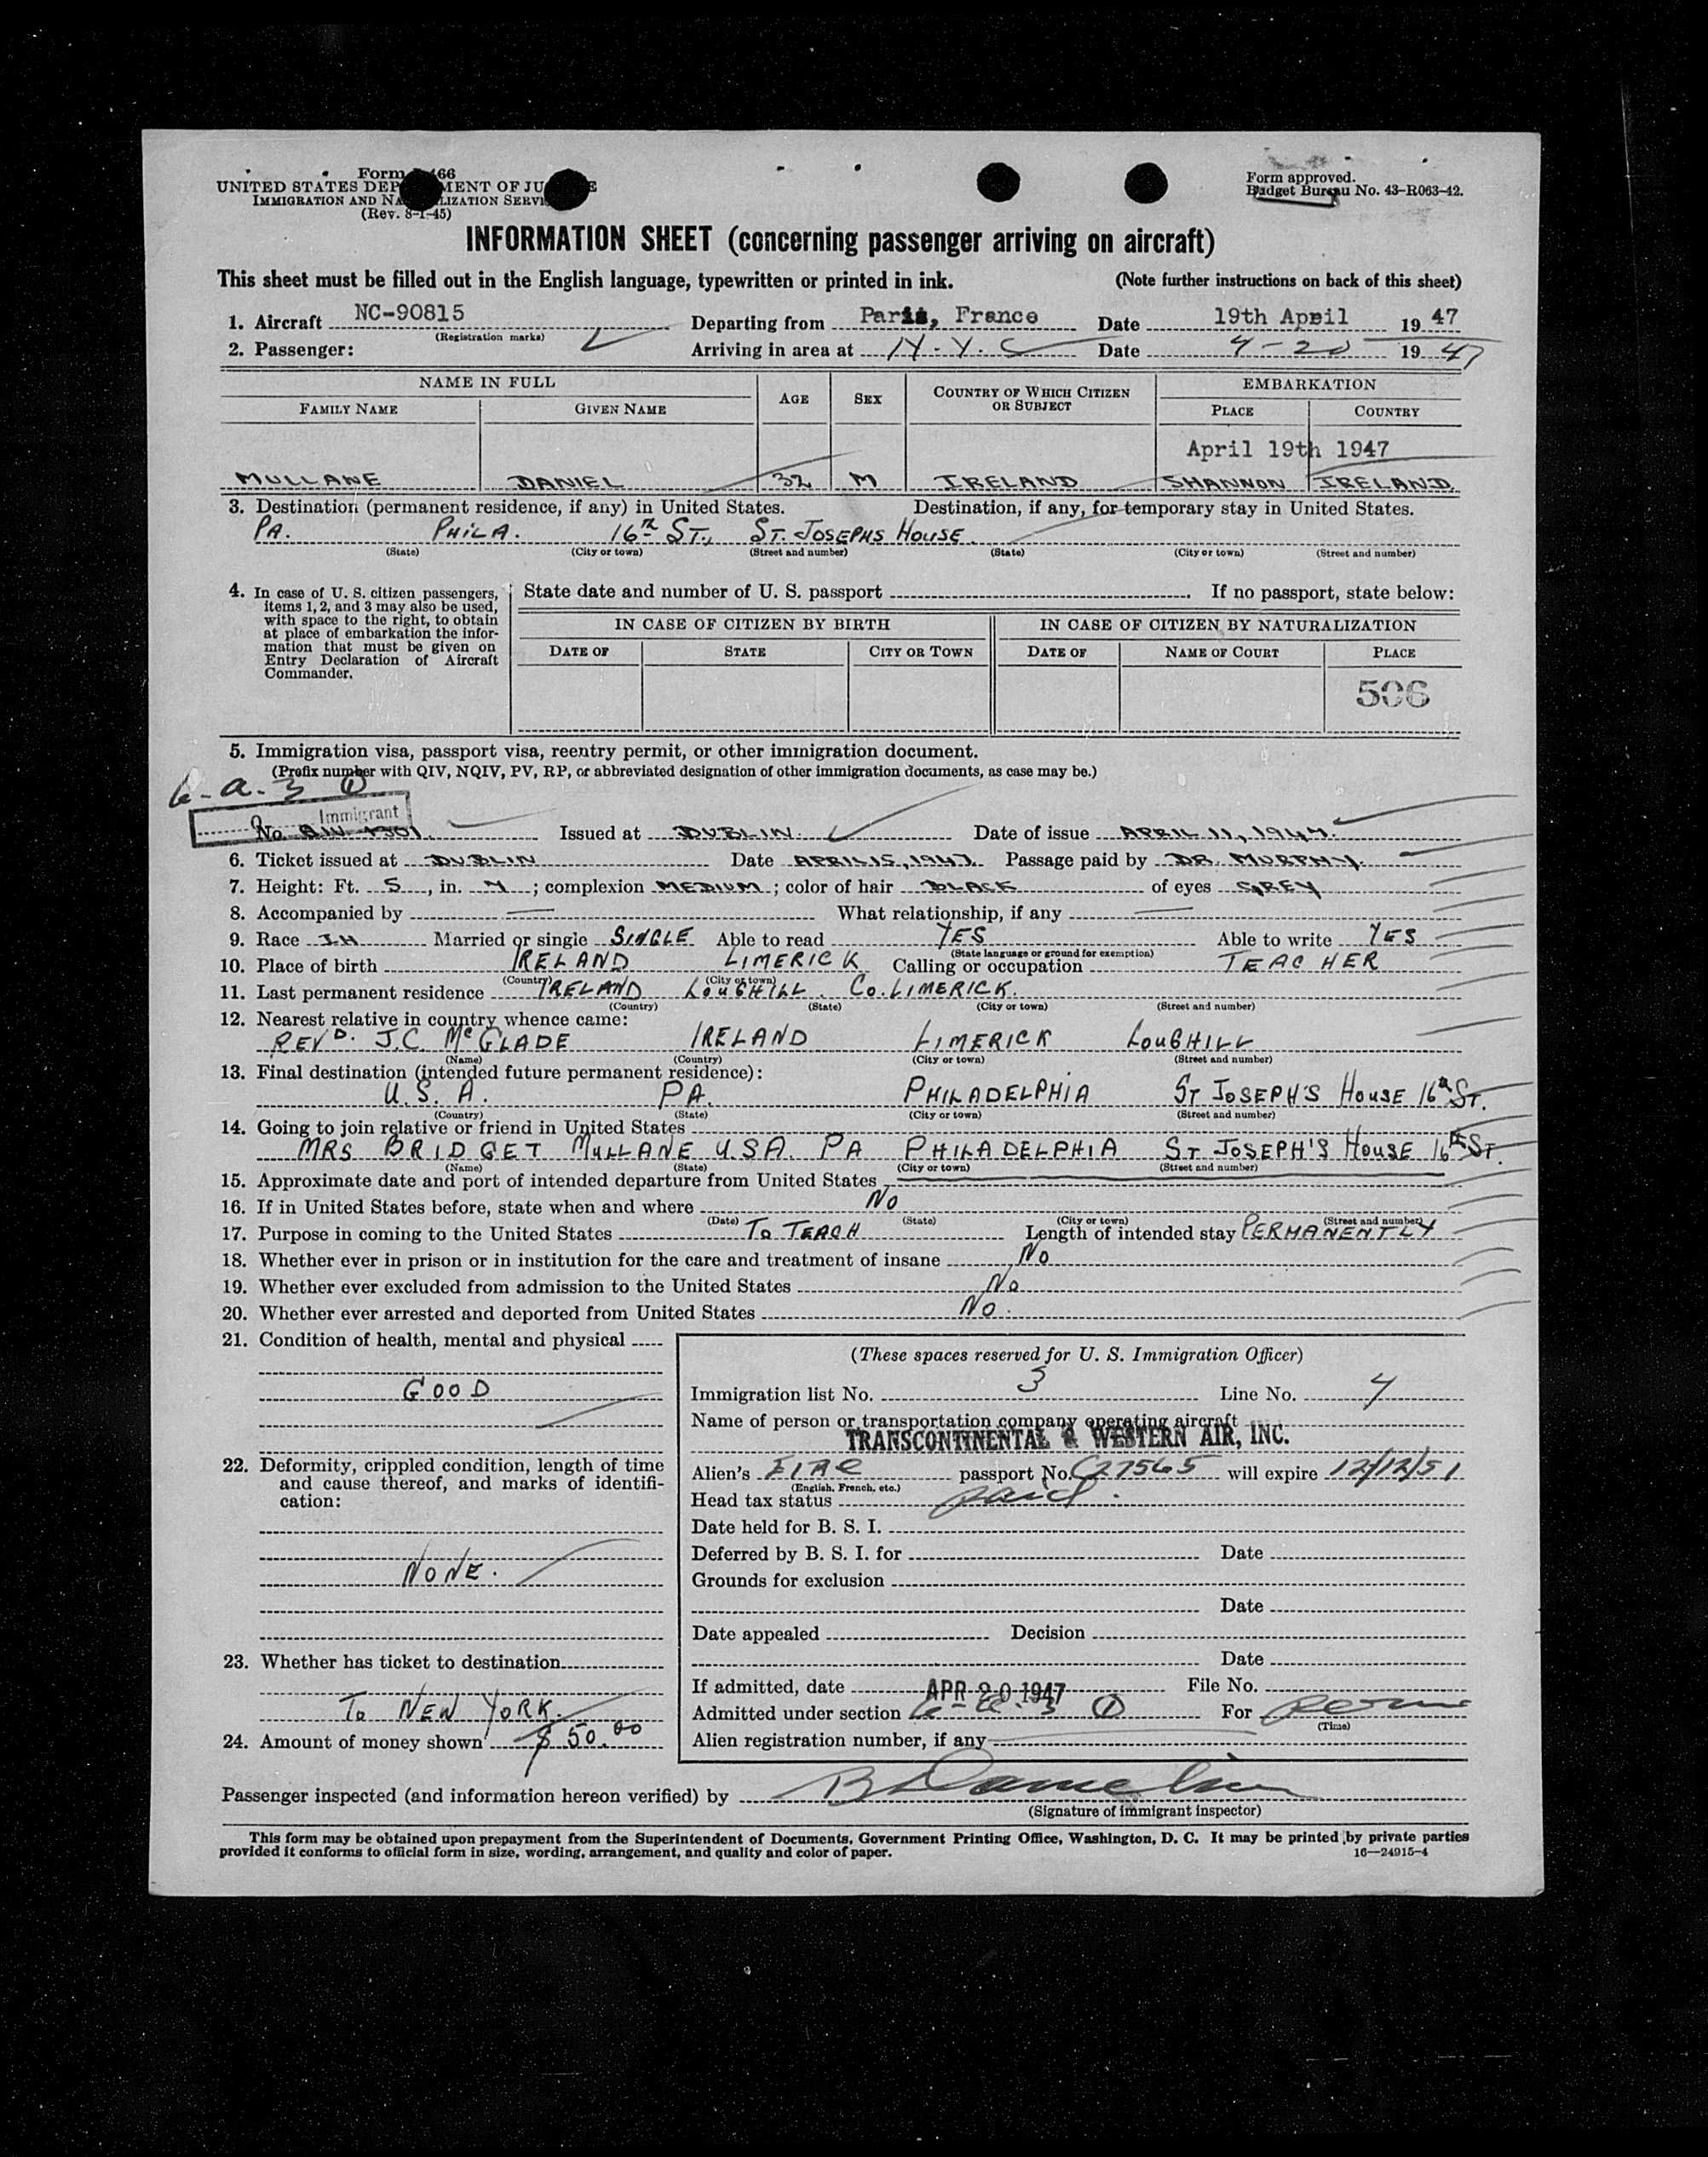 Form 466
UNITED STATES DEP MENT OF JU E
IMMIGRATION AND NA LIZATION SERVI
(Rev. 8-1-45)
Form approved.
Budget Bureau No. 43-R063-42.
INFORMATION SHEET (concerning passenger arriving on aircraft)
This sheet must be filled out in the English language, typewritten or printed in ink. (Note further instructions on back of this sheet)
1. Aircraft NC-90815 Departing from Paris, France Date 19th April 19 47
(Registration marks)
2. Passenger: Arriving in area at N.Y.C Date 4-20 19 47
NAME IN FULL AGE SEX COUNTRY OF WHICH CITIZEN OR SUBJECT EMBARKATION
FAMILY NAME GIVEN NAME PLACE COUNTRY
April 19th 1947
MULLANE DANIEL 32 M IRELAND SHANNON IRELAND.
3. Destination (permanent residence, if any) in United States. Destination, if any, for temporary stay in United States.
PA. PHILA. 16th ST., ST. JOSEPHS HOUSE.
(State) (City or town) (Street and number) (State) (City or town) (Street and number)
4. In case of U. S. citizen passengers, items 1, 2, and 3 may also be used, with space to the right, to obtain at place of embarkation the information that must be given on Entry Declaration of Aircraft Commander.
State date and number of U. S. passport If no passport, state below:
IN CASE OF CITIZEN BY BIRTH IN CASE OF CITIZEN BY NATURALIZATION
DATE OF STATE CITY OR TOWN DATE OF NAME OF COURT PLACE
506
5. Immigration visa, passport visa, reentry permit, or other immigration document.
(Prefix number with QIV, NQIV, PV, RP, or abbreviated designation of other immigration documents, as case may be.)
6-a-3 (1)
Immigrant
No. QIV 1301 Issued at DUBLIN. Date of issue APRIL 11, 1947.
6. Ticket issued at DUBLIN Date APRIL 15, 1947. Passage paid by DR. MURPHY.
7. Height: Ft. 5, in. 4; complexion MEDIUM; color of hair BLACK of eyes GREY
8. Accompanied by — What relationship, if any —
9. Race IH Married or single SINGLE Able to read YES Able to write YES
(State language or ground for exemption)
10. Place of birth IRELAND LIMERICK Calling or occupation TEACHER
(Country) (City or town)
11. Last permanent residence IRELAND LOUGHILL. CO. LIMERICK.
(Country) (State) (City or town) (Street and number)
12. Nearest relative in country whence came:
REVD. J.C. McGLADE IRELAND LIMERICK LOUGHILL
(Name) (Country) (City or town) (Street and number)
13. Final destination (intended future permanent residence):
U. S. A. PA. PHILADELPHIA ST JOSEPH'S HOUSE 16th ST.
(Country) (State) (City or town) (Street and number)
14. Going to join relative or friend in United States
MRS BRIDGET MULLANE U.S.A. PA PHILADELPHIA ST JOSEPH'S HOUSE 16th ST.
(Name) (State) (City or town) (Street and number)
15. Approximate date and port of intended departure from United States
16. If in United States before, state when and where No
(Date) (State) (City or town) (Street and number)
17. Purpose in coming to the United States TO TEACH Length of intended stay PERMANENTLY
18. Whether ever in prison or in institution for the care and treatment of insane No
19. Whether ever excluded from admission to the United States No
20. Whether ever arrested and deported from United States No.
21. Condition of health, mental and physical
GOOD
22. Deformity, crippled condition, length of time and cause thereof, and marks of identification:
NONE.
23. Whether has ticket to destination
TO NEW YORK.
24. Amount of money shown $ 50.00
(These spaces reserved for U. S. Immigration Officer)
Immigration list No. 3 Line No. 4
Name of person or transportation company operating aircraft
TRANSCONTINENTAL & WESTERN AIR, INC.
Alien's EIRE passport No. C27565 will expire 12/12/51
(English, French, etc.)
Head tax status paid.
Date held for B. S. I.
Deferred by B. S. I. for Date
Grounds for exclusion
Date
Date appealed Decision
Date
If admitted, date APR 20 1947 File No.
Admitted under section 6-a-3 (1) For perm
(Time)
Alien registration number, if any
Passenger inspected (and information hereon verified) by
(Signature of immigrant inspector)
This form may be obtained upon prepayment from the Superintendent of Documents, Government Printing Office, Washington, D. C. It may be printed by private parties
provided it conforms to official form in size, wording, arrangement, and quality and color of paper. 16—24915-4